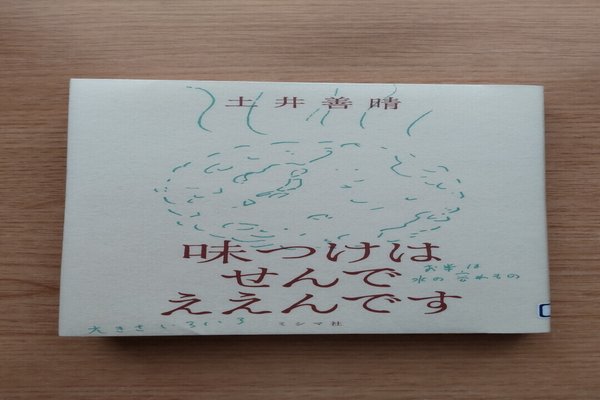 土井善晴
味つけは
せんで
ええんです
お米は
水の
大きさいろいろ
ミシマ社